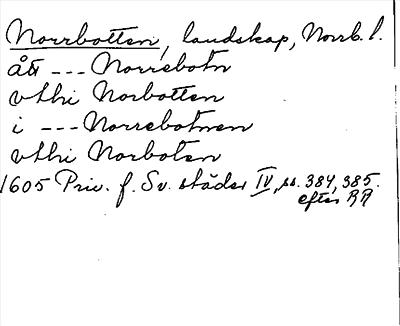 Norrbotten, landskap, Norrb. l.
ått --- Norrebotn
vthi Norbotten
i --- Norrebotnen
vthi Norboten
1605 Priv. f. Sv. städer IV, ss. 384, 385.
efter RR